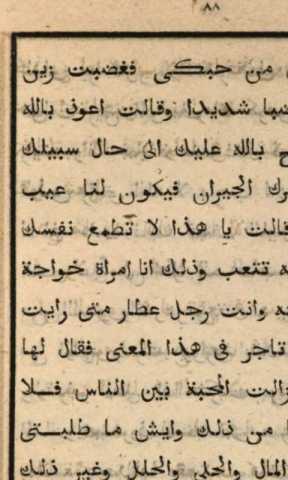 ٨٨
من حبكى فغضبت زين
ضبا شديدا وقالت اعوذ بالله
بالله عليك الى حال سبيلك
الجيران فيكون لنا عيب
قالت يا هذا لا تطمع نفسك
تتعب وذلك انا امراة خواجة
وانت رجل عطار متى رايت
تاجر فى هذا المعنى فقال لها
زالت المحبة بين الناس فلا
من ذلك وايش ما طلبتى
المال والحلى والحلل وغير ذلك